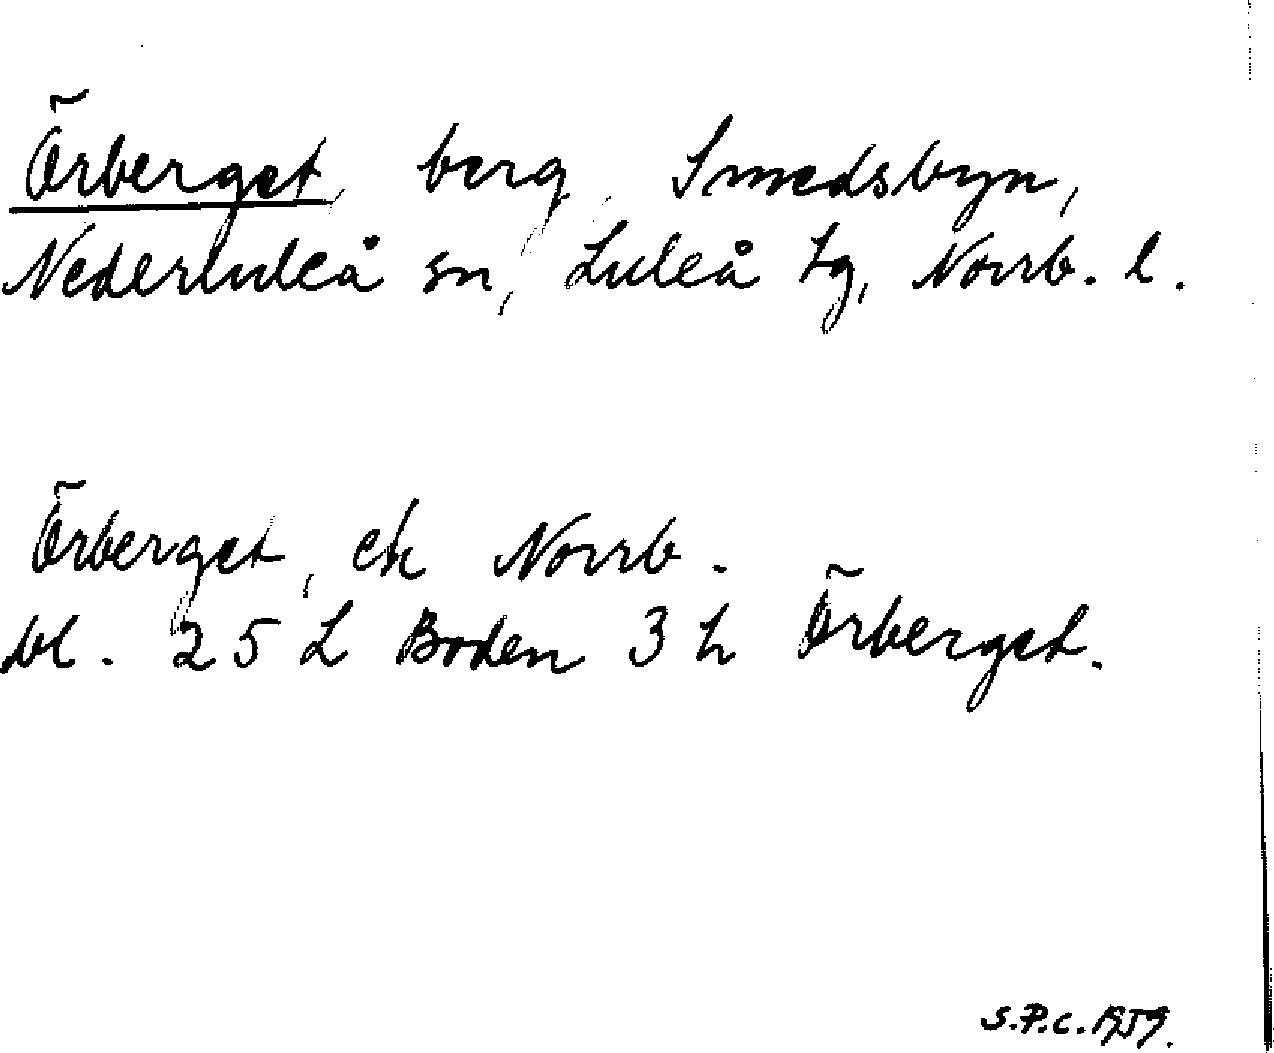 Örberget, berg, Smedsbyn,
Nederluleå sn, Luleå tg, Norrb. l.
Örberget, ek Norrb.
bl. 25 L Boden 3 h Örberget.
S.P.C. 1959.